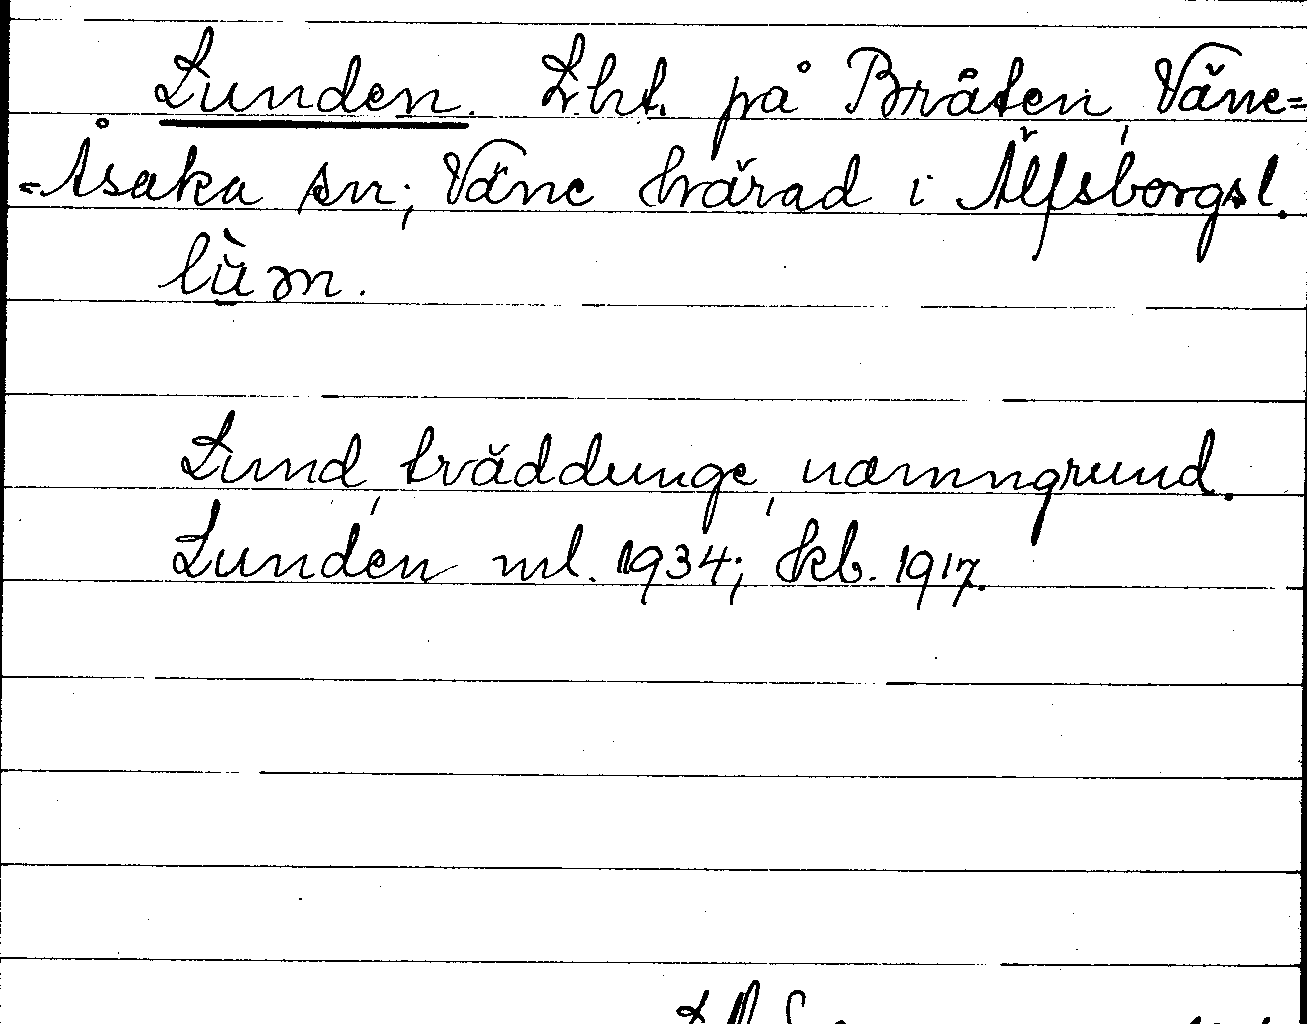 Lunden. Lht. på Bråten, Väne=
=Åsaka sn; Väne härad i Älfsborgsl.
lùm.
Lund, träddunge, namngrund.
Lunden ml. 1934; kb. 1917.